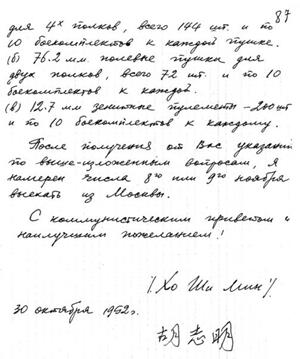 87
для 4х полков, всего 144 шт. и по
10 боекомплектов к каждой пушке.
(б) 76.2 мм. полевые пушки для
двух полков, всего 72 шт. и по 10
боекомплектов к каждой.
(в) 12.7 мм зенитные пулеметы - 200 шт
и по 10 боекомплектов к каждому.
После получения от Вас указаний
по выше-изложенным вопросам, я
намерен числа 8го или 9го ноября
выехать из Москвы.
С коммунистическим приветом и
наилучшим пожеланием!
/Хо Ши Мин/.
30 октября 1952г.
胡志明